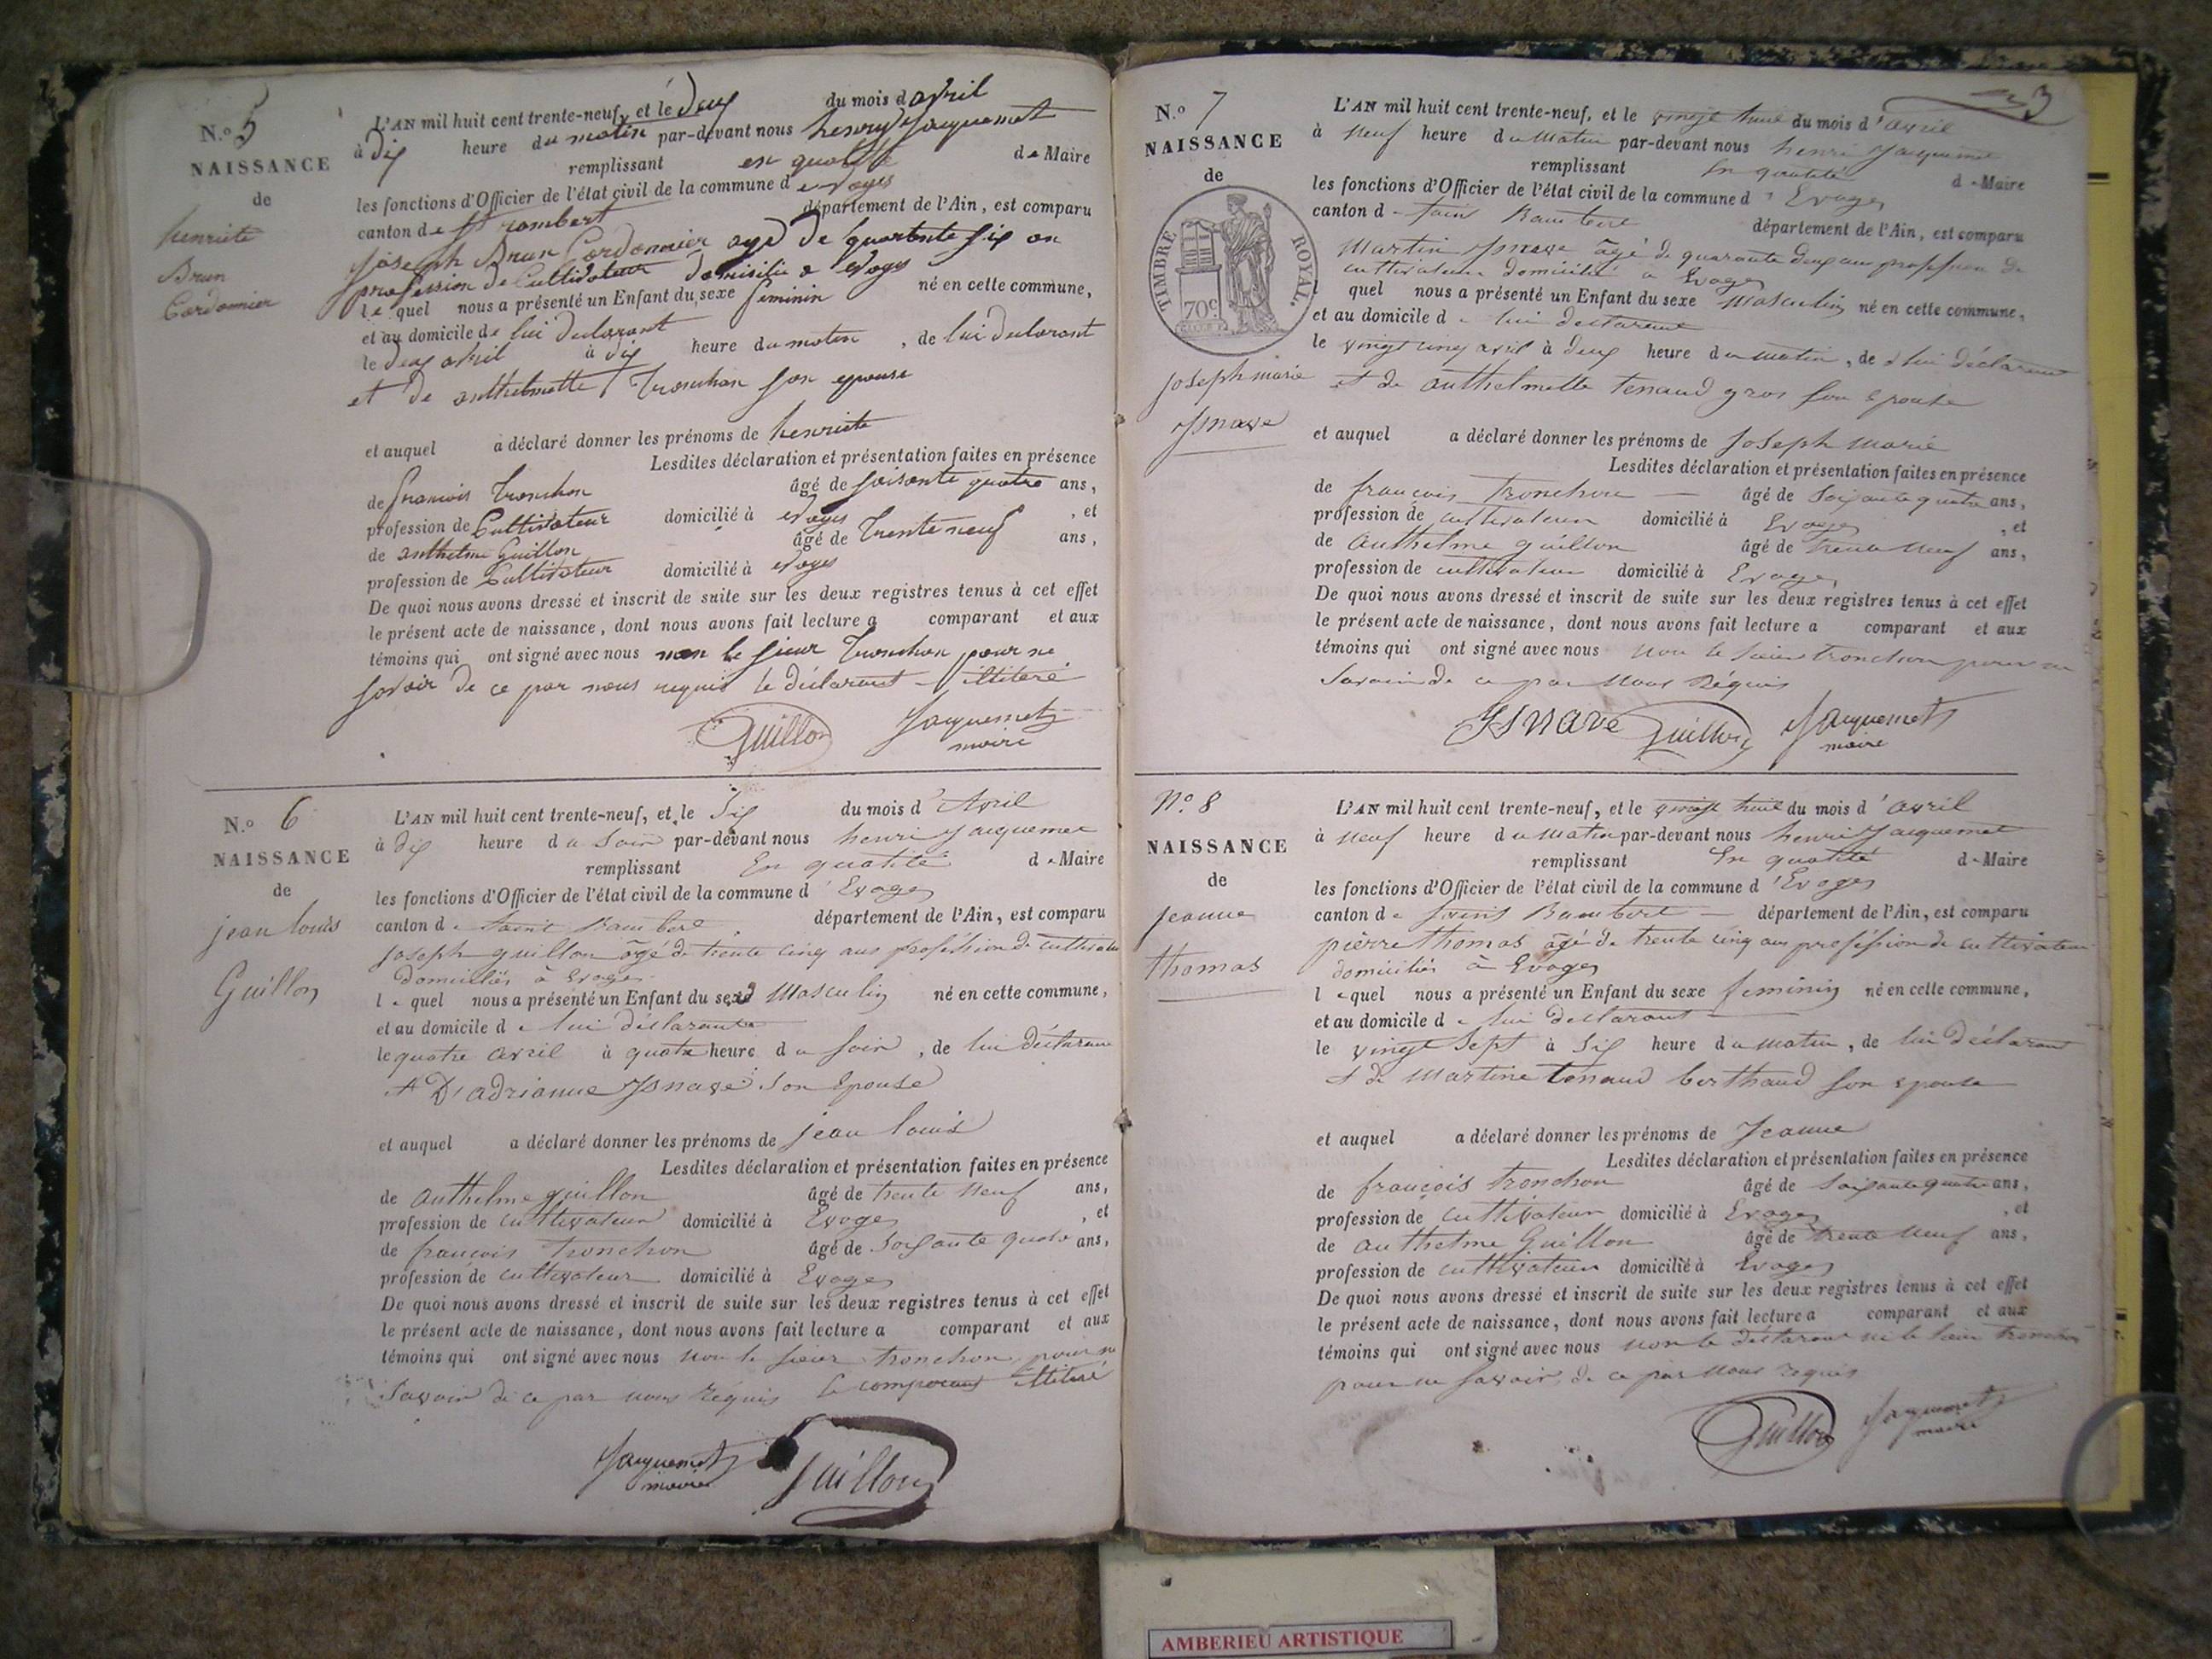 N.o 5
NAISSANCE
de
henriete
Brun
Cordonnier
L'AN mil huit cent trente-neuf, et le deux du mois d avril
à dix heure du matin par-devant nous henry Jacquemet
remplissant en qualité de Maire
les fonctions d'Officier de l'état civil de la commune d evoges
canton de St rambert département de l'Ain, est comparu
joseph Brun Cordonnier agé de quarente six an
profession de Cultivateur domicilié a evoges
le quel nous a présenté un Enfant du sexe feminin né en cette commune,
et au domicile de lui declarant
le deux avril à dix heure du matin, de lui declarant
et de anthelmette Tronchon son epouse
et auquel a déclaré donner les prénoms de henriete
Lesdites déclaration et présentation faites en présence
de francois Tronchon âgé de soisante quatre ans,
profession de Cultivateur domicilié à evoges, et
de anthelme Guillon âgé de Trente neuf ans,
profession de Cultivateur domicilié à evoges
De quoi nous avons dressé et inscrit de suite sur les deux registres tenus à cet effet
le présent acte de naissance, dont nous avons fait lecture a comparant et aux
témoins qui ont signé avec nous non le sieur Tronchon pour ne
savoir de ce par nous requis le déclarant illiteré
Guillon Jacquemet
maire
N.o 6
NAISSANCE
de
jean louis
Guillon
L'AN mil huit cent trente-neuf, et le Six du mois d' Avril
à dix heure du Soir par-devant nous henri Jacquemet
remplissant En qualité de Maire
les fonctions d'Officier de l'état civil de la commune d' Evoges
canton de Saint Rambert département de l'Ain, est comparu
Joseph guillon âgé de trente cinq ans profession de cultivateur
domiciliés à Evoges
le quel nous a présenté un Enfant du sexe Masculin né en cette commune,
et au domicile de lui déclarant
le quatre avril à quatre heure du soir, de lui déclarant
et D'adrianne Jsnave son Epouse
et auquel a déclaré donner les prénoms de jean louis
Lesdites déclaration et présentation faites en présence
de anthelme guillon âgé de trente neuf ans,
profession de cultivateur domicilié à Evoges, et
de francois tronchon âgé de Soixante quatre ans,
profession de cultivateur domicilié à Evoges
De quoi nous avons dressé et inscrit de suite sur les deux registres tenus à cet effet
le présent acte de naissance, dont nous avons fait lecture a comparant et aux
témoins qui ont signé avec nous non le sieur tronchon pour ne
Savoir de ce par nous Requis le comparant illiteré
Jacquemet Guillon
maire
3
N.o 7
NAISSANCE
de
TIMBRE ROYAL.
70c
joseph marie
Jsnave
L'AN mil huit cent trente-neuf, et le vingt huit du mois d' avril
à neuf heure du Matin par-devant nous henri Jacquemet
remplissant En qualité de Maire
les fonctions d'Officier de l'état civil de la commune d' Evoges
canton de Saint Rambert département de l'Ain, est comparu
Martin Jsnave âgé de quarante deux ans profession de
cultivateur domicilié a Evoges
quel nous a présenté un Enfant du sexe Masculin né en cette commune,
et au domicile de lui declarant
le vingt cinq avril à deux heure du matin, de lui déclarant
et de anthelmette tenaud gros son Epouse
et auquel a déclaré donner les prénoms de Joseph Marie
Lesdites déclaration et présentation faites en présence
de francois Tronchon âgé de Soixante quatre ans,
profession de cultivateur domicilié à Evoges, et
de Anthelme guillon âgé de trente neuf ans,
profession de cultivateur domicilié à Evoges
De quoi nous avons dressé et inscrit de suite sur les deux registres tenus à cet effet
le présent acte de naissance, dont nous avons fait lecture a comparant et aux
témoins qui ont signé avec nous non le sieur tronchon pour ne
Savoir de ce par nous Réquis
JSNAVE Guillon Jacquemet
maire
N.o 8
NAISSANCE
de
jeanne
thomas
L'AN mil huit cent trente-neuf, et le vingt huit du mois d' avril
à neuf heure du Matin par-devant nous henri Jacquemet
remplissant En qualité de Maire
les fonctions d'Officier de l'état civil de la commune d' Evoges
canton de Saint Rambert département de l'Ain, est comparu
pièrre thomas âgé de trente cinq ans profession de cultivateur
domiciliés à Evoges
le quel nous a présenté un Enfant du sexe feminin né en cette commune,
et au domicile de lui declarant
le vingt Sept à Six heure du matin, de lui déclarant
et de Martine tenaud berthaud son epouse
et auquel a déclaré donner les prénoms de Jeanne
Lesdites déclaration et présentation faites en présence
de françois tronchon âgé de Soixante quatre ans,
profession de cultivateur domicilié à Evoges, et
de authelme Guillon âgé de trente neuf ans,
profession de cultivateur domicilié à Evoges
De quoi nous avons dressé et inscrit de suite sur les deux registres tenus à cet effet
le présent acte de naissance, dont nous avons fait lecture a comparant et aux
témoins qui ont signé avec nous non le déclarant ni le sieur tronchon
pour ne savoir de ce par nous requis
Guillon Jacquemet
maire
AMBERIEU ARTISTIQUE